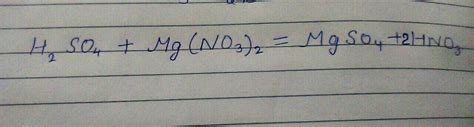 H₂SO₄ + Mg(NO₃)₂ = MgSO₄ + 2HNO₃